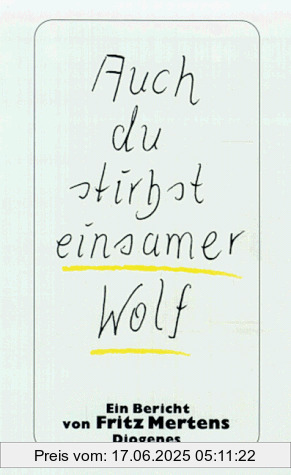 Auch
du
stirbst
einsamer
Wolf
Ein Bericht
von Fritz Mertens
Diogenes
Preis vom: 17.06.2025 05:11:22